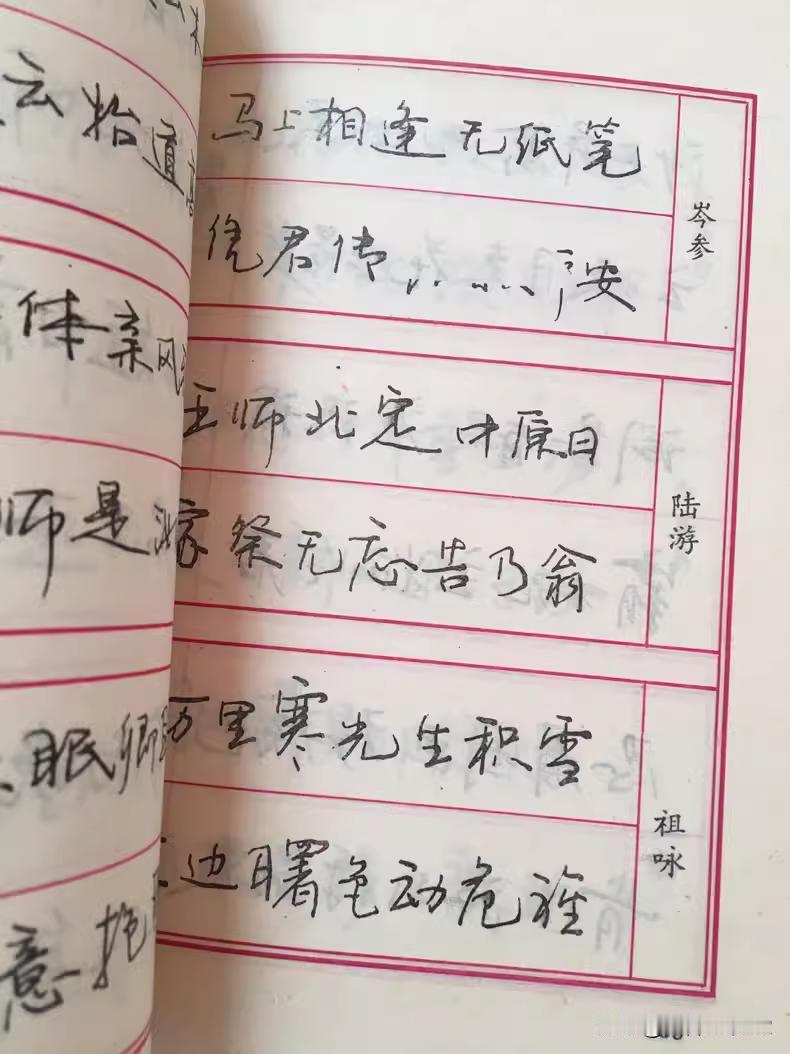 云抬道
体亲风
师是
眠卿
意抱
马上相逢无纸笔
凭君传......安
岑参
王师北定中原日
家祭无忘告乃翁
陆游
万里寒光生积雪
边曙色动危
祖咏